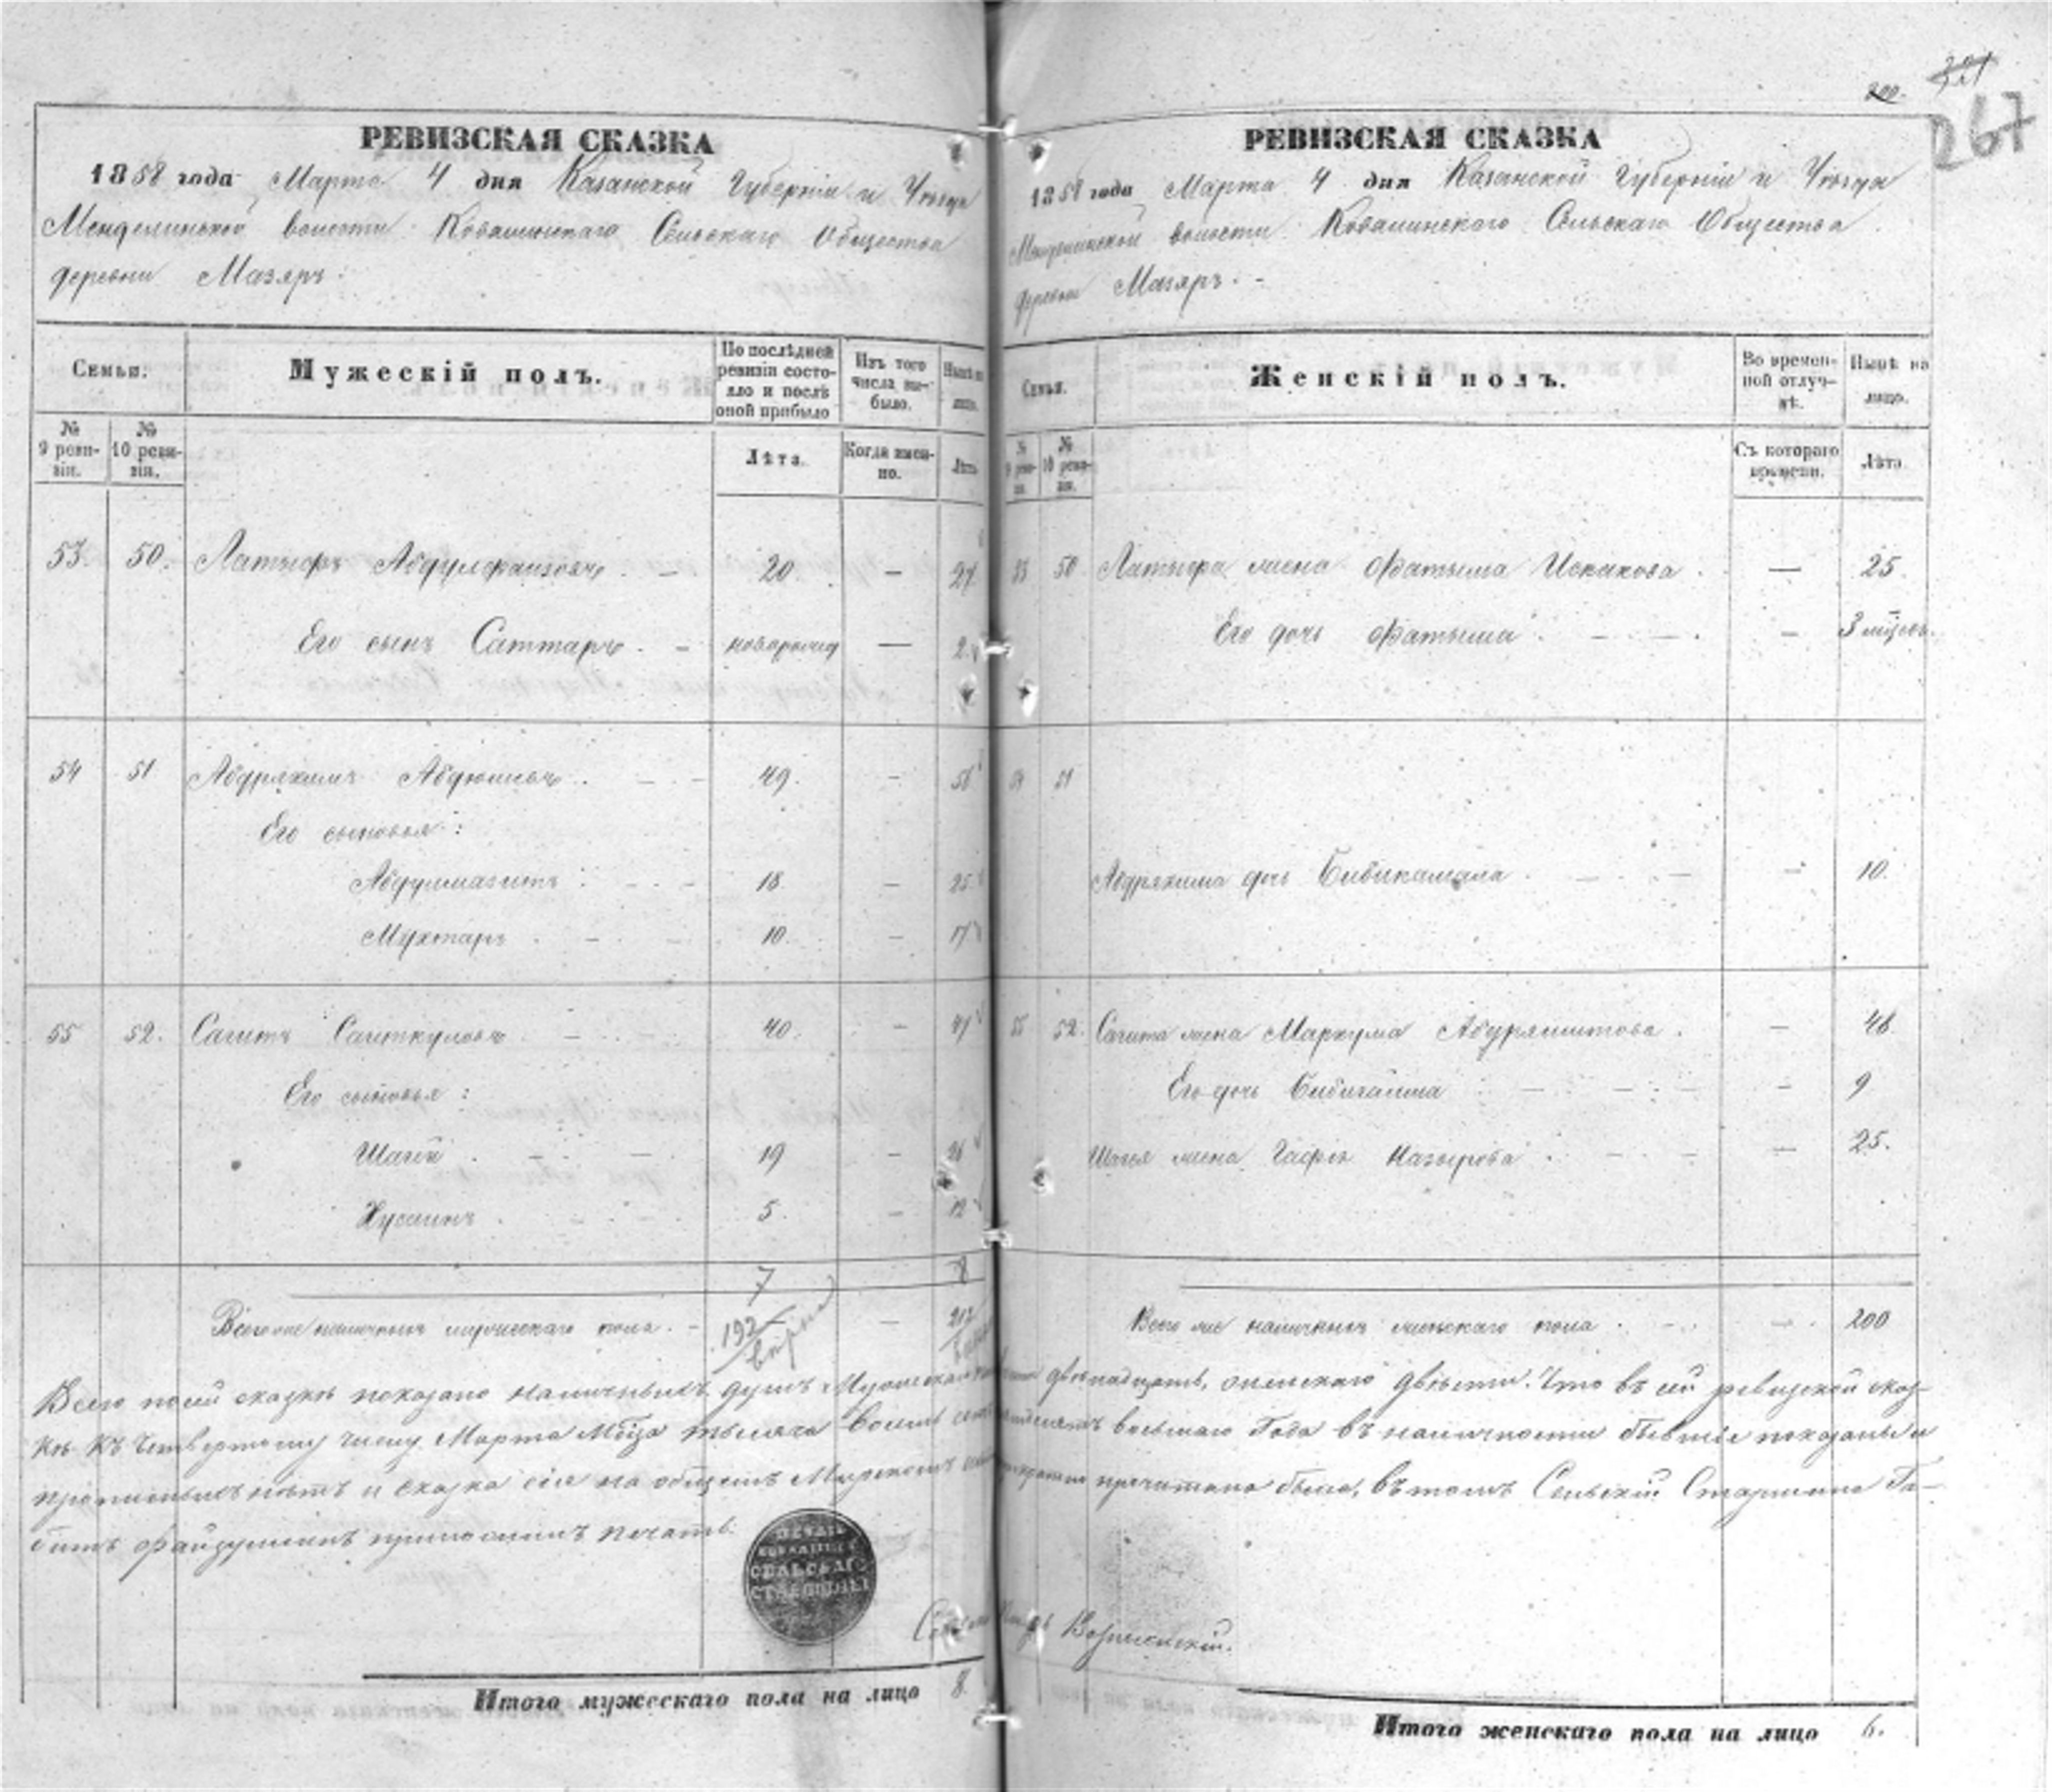 200.
321
267
РЕВИЗСКАЯ СКАЗКА
1858 года Марта 4 дня Казанской Губерніи и Уѣзда
Менделинской волости Ковалинскаго Сельскаго Общества
деревни Мазяръ:
Семьи.
Мужескій полъ.
По послѣдней ревизіи состояло и послѣ оной прибыло
Изъ того числа выбыло.
Нынѣ на лицо.
№ 9 ревизіи.
№ 10 ревизіи.
Лѣта.
Когда именно.
Лѣта
53. 50. Латыфъ Абдулфаизовъ. — 20. — 27
Его сынъ Саттаръ. — новорожд — 2.
54 51 Абдряхимъ Абдюшевъ. — — 49. — 56
Его сыновья:
Абдулмазитъ. — 18. — 25
Мухтаръ. — 10. — 17
55 52. Сагитъ Сагиткуловъ — 40. — 47
Его сыновья:
Шагій. — — 19 — 26
Хусаинъ. — 5. — 12
7 8
Всего же наличныхъ мужескаго пола. — 192 — 212
РЕВИЗСКАЯ СКАЗКА
1858 года Марта 4 дня Казанской Губерніи и Уѣзда
Менделинской волости Ковалинскаго Сельскаго Общества
деревни Мазяръ. -
Семьи.
Женскій полъ.
Во временной отлучкѣ.
Нынѣ на лицо.
№ 9 ревизіи.
№ 10 ревизіи.
Съ котораго времени.
Лѣта
53 50 Латыфа жена Фатыма Искакова. — 25.
Его дочь Фатыма. — — 3 мѣсяц.
54 51
Абдряхима дочь Бибикамала. — — 10.
55 52. Сагита жена Маркума Абдряшитова. — 48
Его дочь Бибигайша — — 9
Шагія жена Гафія Назырова. — — 25.
Всего же наличныхъ женскаго пола. — 200
Всего по сей сказкѣ показано наличныхъ душъ Мужескаго двѣнадцать, женскаго двѣсти. Что въ сей ревизской сказ-
кѣ къ Четвертому числу Марта Мѣсяца тысяча восемь сотъ восьмаго Года въ наличности бывшіе показаны и
прописныхъ нѣтъ и сказка сія на общемъ Мирскомъ прочитана была, въ томъ Сельскій Старшина Га-
битъ Файзуллинъ приложилъ печать.
ПЕЧАТЬ
СЕЛЬСКАГО
СТАРШИНЫ
Итого мужескаго пола на лицо 8.
Итого женскаго пола на лицо 6.